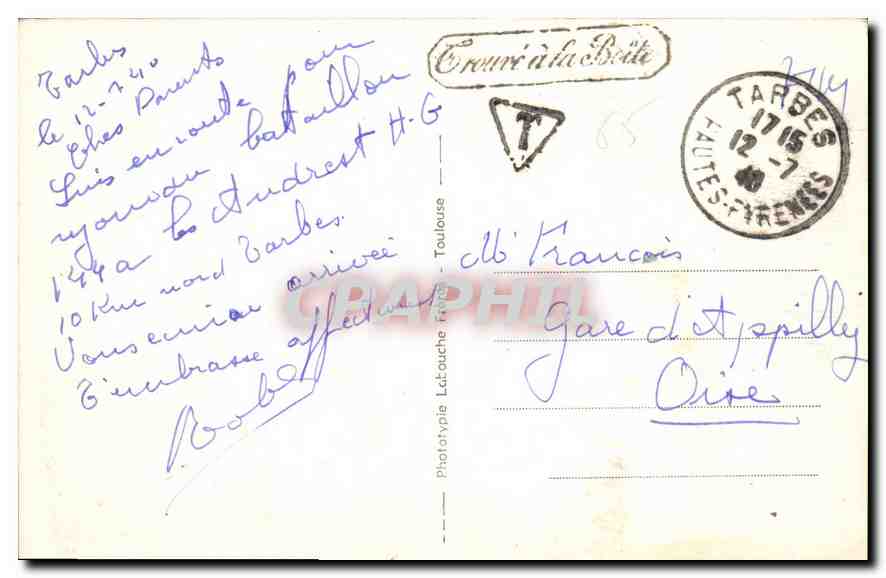 Tarbes
le 12-7 40
Chers Parents
Suis en route pour
rejoindre bataillon
144 a les Andrest H-G
10 Km nord Tarbes.
Vous arrivée
T'embrasse affectueux
Trouvé à la Boîte
T
65
TARBES
17 15
12 -7
40
HAUTES-PYRENEES
Mr Francois
Gare d'Appilly
Oise
Phototypie Labouche Frères - Toulouse
CPAPHIL